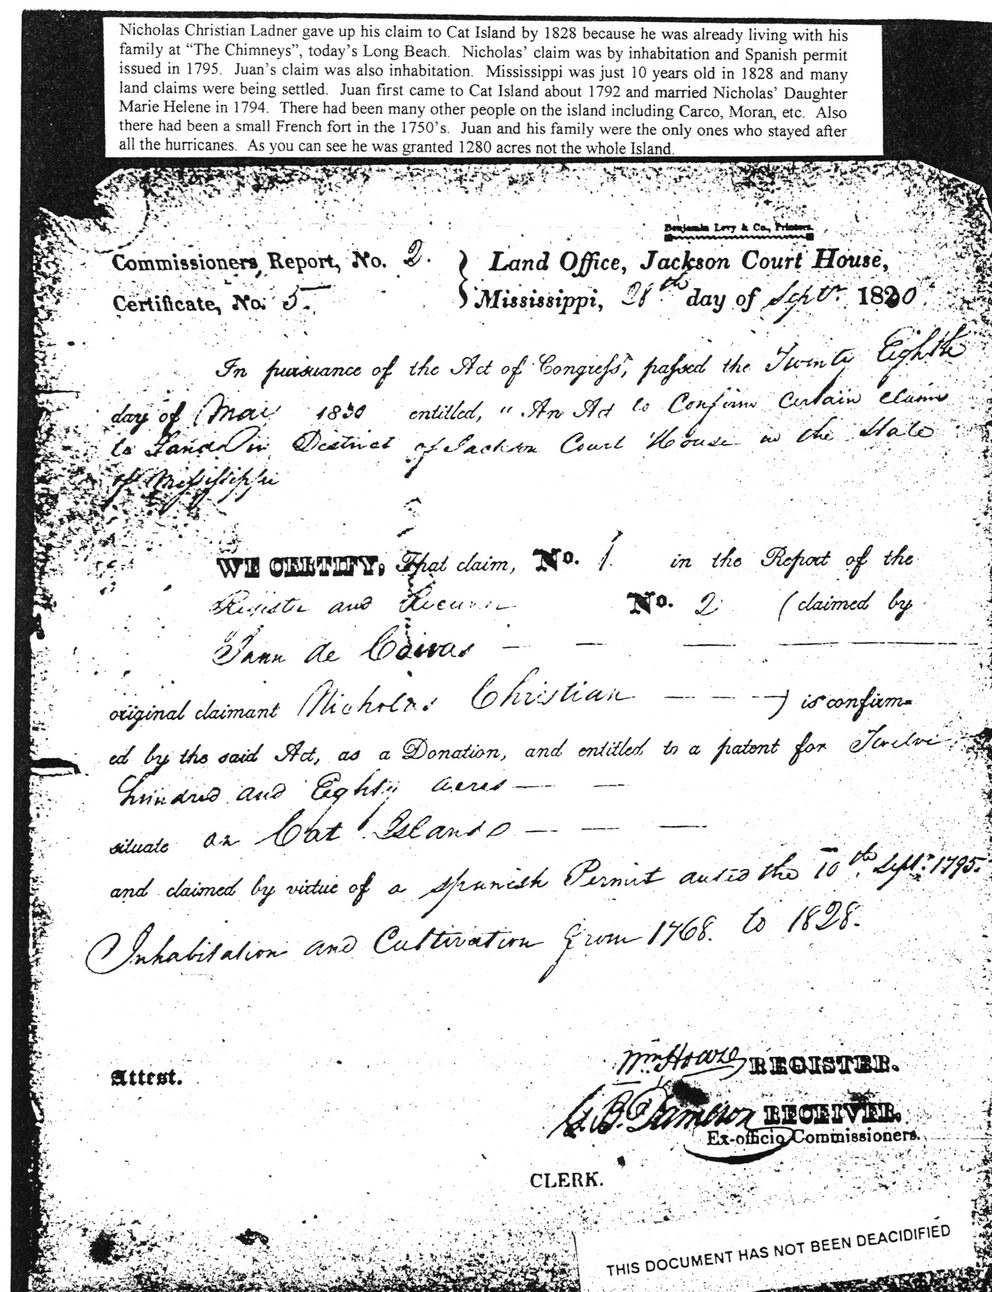 Nicholas Christian Ladner gave up his claim to Cat Island by 1828 because he was already living with his
family at “The Chimneys”, today’s Long Beach. Nicholas’ claim was by inhabitation and Spanish permit
issued in 1795. Juan’s claim was also inhabitation. Mississippi was just 10 years old in 1828 and many
land claims were being settled. Juan first came to Cat Island about 1792 and married Nicholas’ Daughter
Marie Helene in 1794. There had been many other people on the island including Carco, Moran, etc. Also
there had been a small French fort in the 1750’s. Juan and his family were the only ones who stayed after
all the hurricanes. As you can see he was granted 1280 acres not the whole Island.
Benjamin Levy & Co., Printers.
Commissioners Report, No. 2. Land Office, Jackson Court House,
Certificate, No. 5 Mississippi, 28th day of Septr 1830.
In pursuance of the Act of Congress, passed the Twenty Eighth
day of May 1830 entitled, “An Act to Confirm Certain claims
to Lands in District of Jackson Court House in the State
of Mississippi
WE CERTIFY, That claim, No. 1. in the Report of the
Register and Receiver No. 2 (claimed by
Juan de
original claimant Nicholas Christian ) is confirm-
ed by the said Act, as a Donation, and entitled to a patent for Twelve
hundred and Eighty acres
situate on Cat Island
and claimed by virtue of a Spanish Permit dated the 10th Septr 1795.
Inhabitation and Cultivation from 1768. to 1828.
Wm Howze REGISTER.
Attest.
G. B. Dameron RECEIVER.
Ex-officio Commissioners.
CLERK.
THIS DOCUMENT HAS NOT BEEN DEACIDIFIED